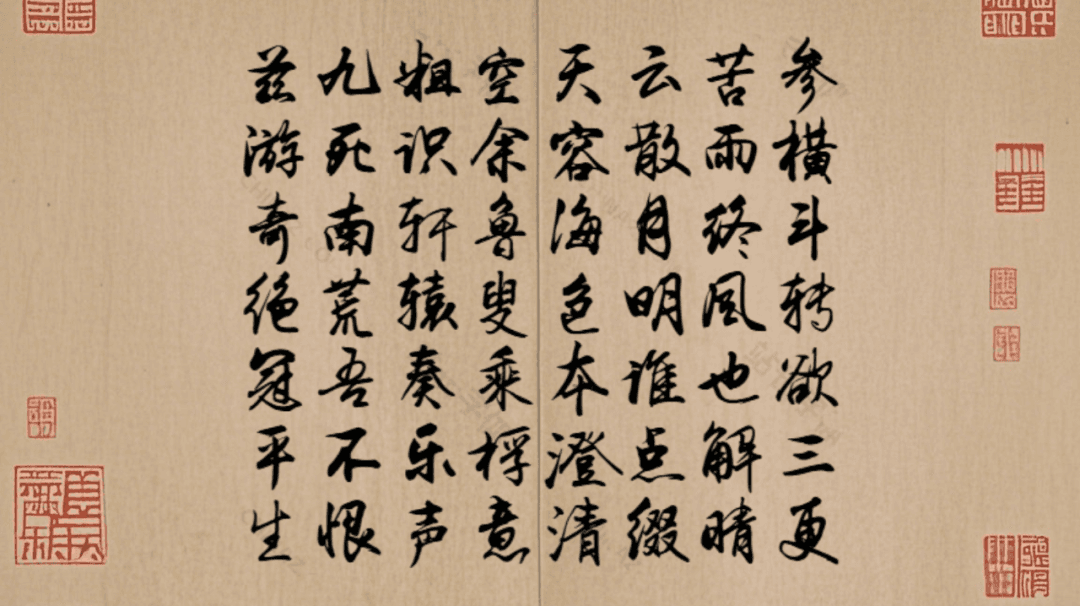 参横斗转欲三更
苦雨终风也解晴
云散月明谁点缀
天容海色本澄清
空余鲁叟乘桴意
粗识轩辕奏乐声
九死南荒吾不恨
兹游奇绝冠平生